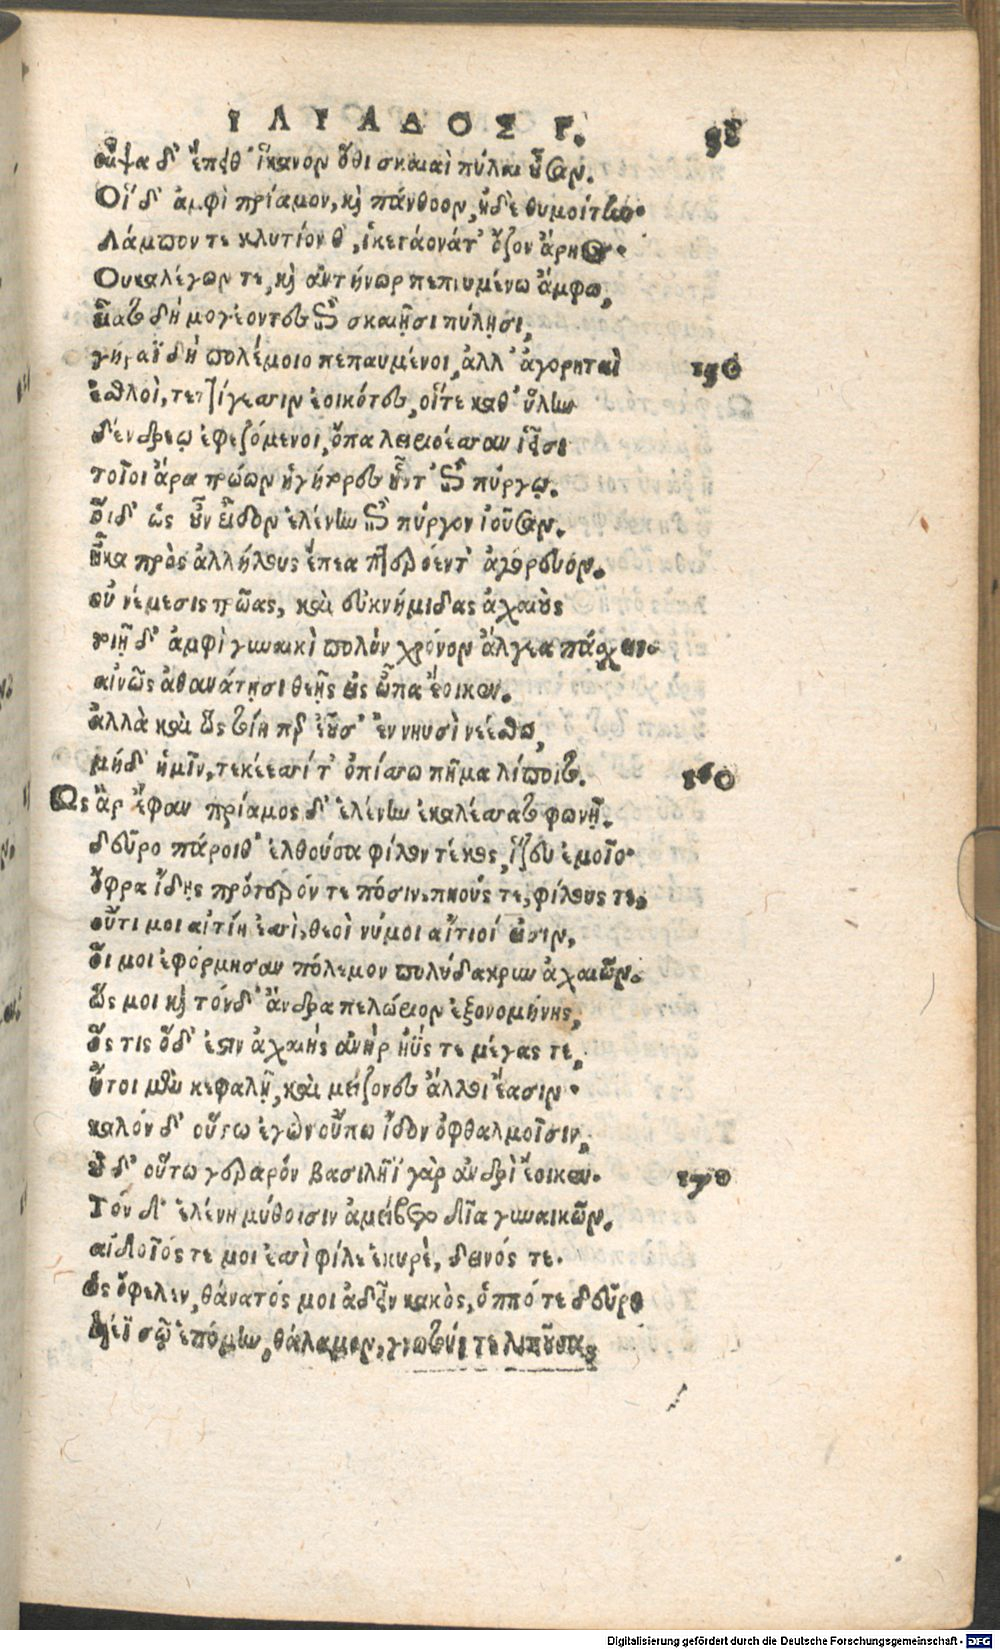 ΙΛΙΑΔΟΣ Γ.
αἶψα δ' ἔπειθ' ἵκανον ὅθι σκαιαὶ πύλαι ἦσαν.
Οἵ δ' ἀμφὶ πρίαμον, καὶ πάνθοον, ἠδὲ θυμοίτην·
Λάμπον τε κλυτίον θ', ἱκετάονάτ' ὄζον ἄρηος·
Ουκαλέγων τε, καὶ ἀντήνωρ πεπνυμένω ἄμφω,
εἵατο δημογέροντες ἐπὶ σκαιῇσι πύλῃσι,
γήραϊ δὴ πολέμοιο πεπαυμένοι, ἀλλ' ἀγορηταὶ 150
ἐσθλοὶ, τεττίγεσσιν ἐοικότες, οἵτε καθ' ὕλην
δένδρεῳ ἐφεζόμενοι, ὄπα λειριόεσσαν ἱεῖσι
τοῖοι ἄρα τρώων ἡγήτορες ἧντ' ἐπὶ πύργῳ.
Οἵ δ' ὡς οὖν εἶδον ἑλένην ἐπὶ πύργον ἰοῦσαν.
ἧκα πρὸς ἀλλήλους ἔπεα πτερόεντ' ἀγόρευον.
οὐ νέμεσις τρῶας, καὶ ἐυκνήμιδας ἀχαιοὺς
τοιῇ δ' ἀμφὶ γυναικὶ πολὺν χρόνον ἄλγεα πάσχειν.
αἰνῶς ἀθανάτῃσι θεῇς εἰς ὦπα ἔοικεν.
ἀλλὰ καὶ ὧς τοίη περ ἐοῦσ' ἐν νηυσὶ νεέσθω,
μήδ' ἡμῖν, τεκέεσσί τ' ὀπίσσω πῆμα λίποιτο. 160
Ως ἂρ ἔφαν πρίαμος δ' ἑλένην ἐκαλέσσατο φωνῇ.
δεῦρο πάροιθ' ἐλθοῦσα φίλον τέκος, ἵζευ ἐμοῖο·
ὄφρα ἴδῃς πρότερόν τε πόσιν, πηούς τε, φίλους τε,
οὔτι μοι αἰτίη ἐσσὶ, θεοὶ νύ μοι αἴτιοί εἰσιν,
Οἵ μοι ἐφόρμησαν πόλεμον πολύδακρυν ἀχαιῶν.
ὥς μοι καὶ τόνδ' ἄνδρα πελώριον ἐξονομήνῃς,
ὅς τις ὅδ' ἐστὶν ἀχαιὸς ἀνὴρ ἠΰς τε μέγας τε,
ἤτοι μὲν κεφαλῇ, καὶ μείζονες ἄλλοι ἔασιν·
καλόν δ' οὕτω ἐγὼν οὔπω ἴδον ὀφθαλμοῖσιν,
οὐδ' οὕτω γεραρόν βασιλῆϊ γὰρ ἀνδρὶ ἔοικεν. 170
Τὸν δ' ἑλένη μύθοισιν ἀμείβετο δῖα γυναικῶν.
αἰδοῖός τε μοι ἐσσὶ φίλε ἑκυρὲ, δεινός τε.
ὡς ὄφελεν, θάνατός μοι ἁδεῖν κακὸς, ὁππότε δεῦρο
ὑϊέϊ σῷ ἑπόμην, θάλαμον, γνωτούς τε λιποῦσα,
Digitalisierung gefördert durch die Deutsche Forschungsgemeinschaft - DFG